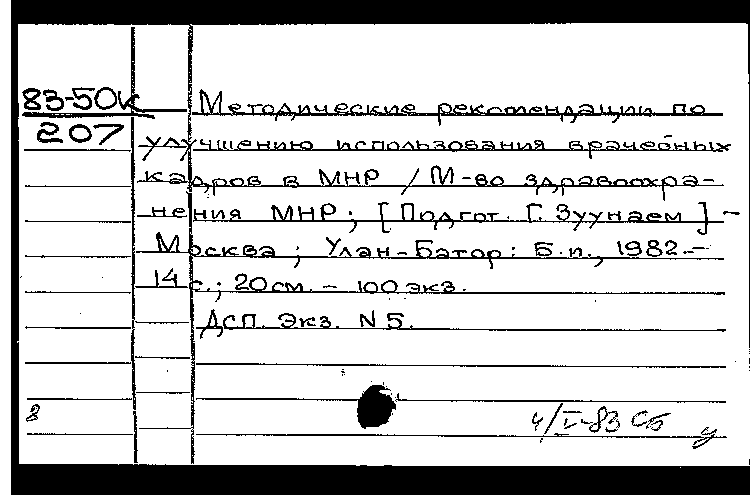 83-50к Методические рекомендации по
207 улучшению использования врачебных
кадров в МНР / М-во здравоохра-
нения МНР; [Подгот. Г. Зуунаем] -
Москва; Улан-Батор: Б.и., 1982.-
14 с.; 20 см. - 100 экз.
Дсп. Экз. N 5.
8
4/V-83 Сб
у